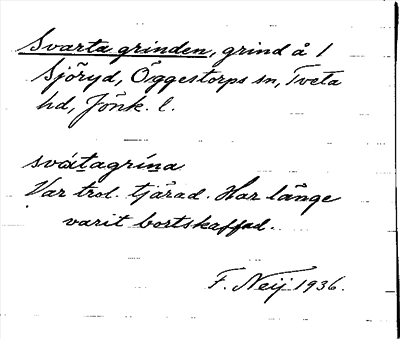 Svarta grinden, grind å 1
Sjöryd, Öggestorps sn, Tveta
hd, Jönk. l.
svátagrína
Var trol. tjärad. Har länge
varit bortskaffad.
F. Neij 1936.